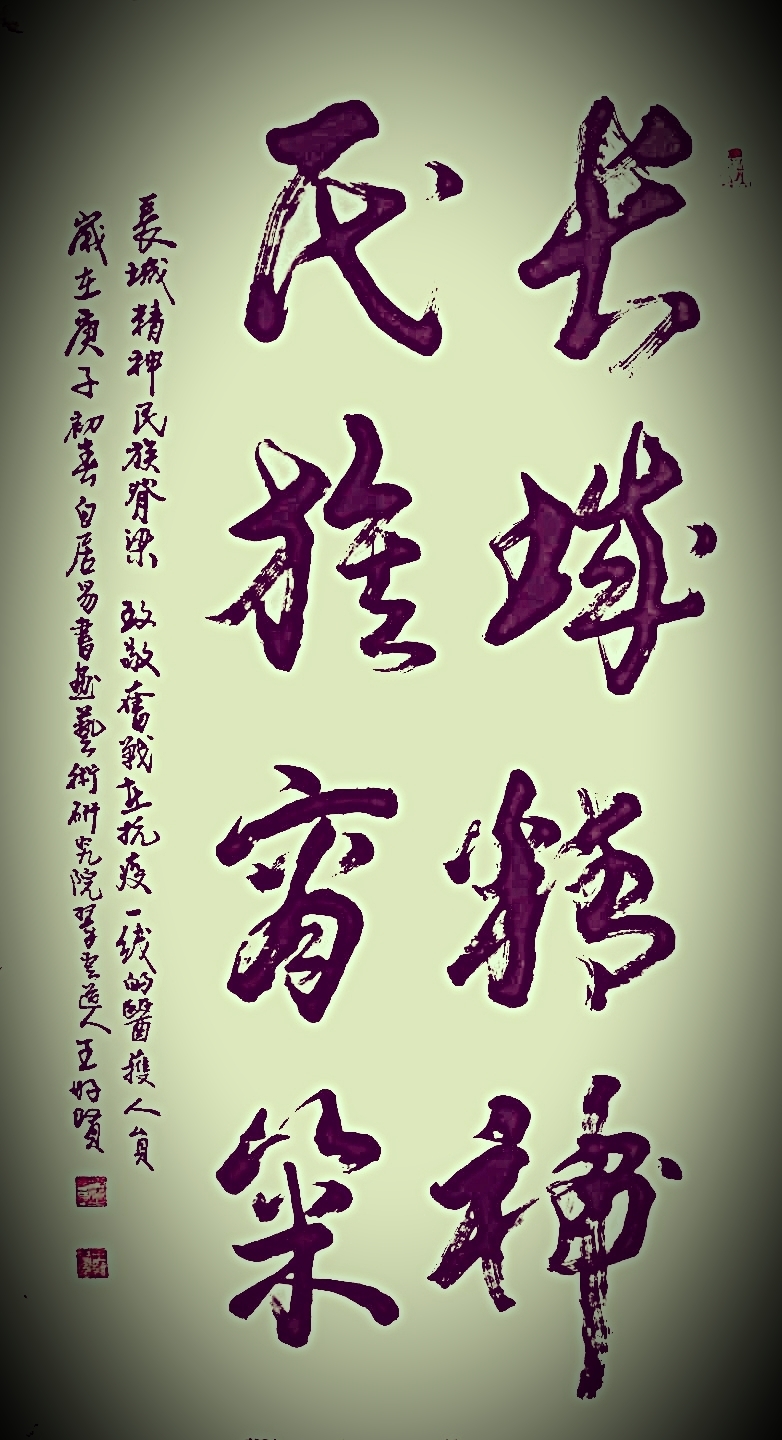 长城精神
民族脊梁
長城精神民族脊梁 致敬奮戰在抗疫一线的醫護人員
歲在庚子初春白居易書畫藝術研究院翠云道人王好賢